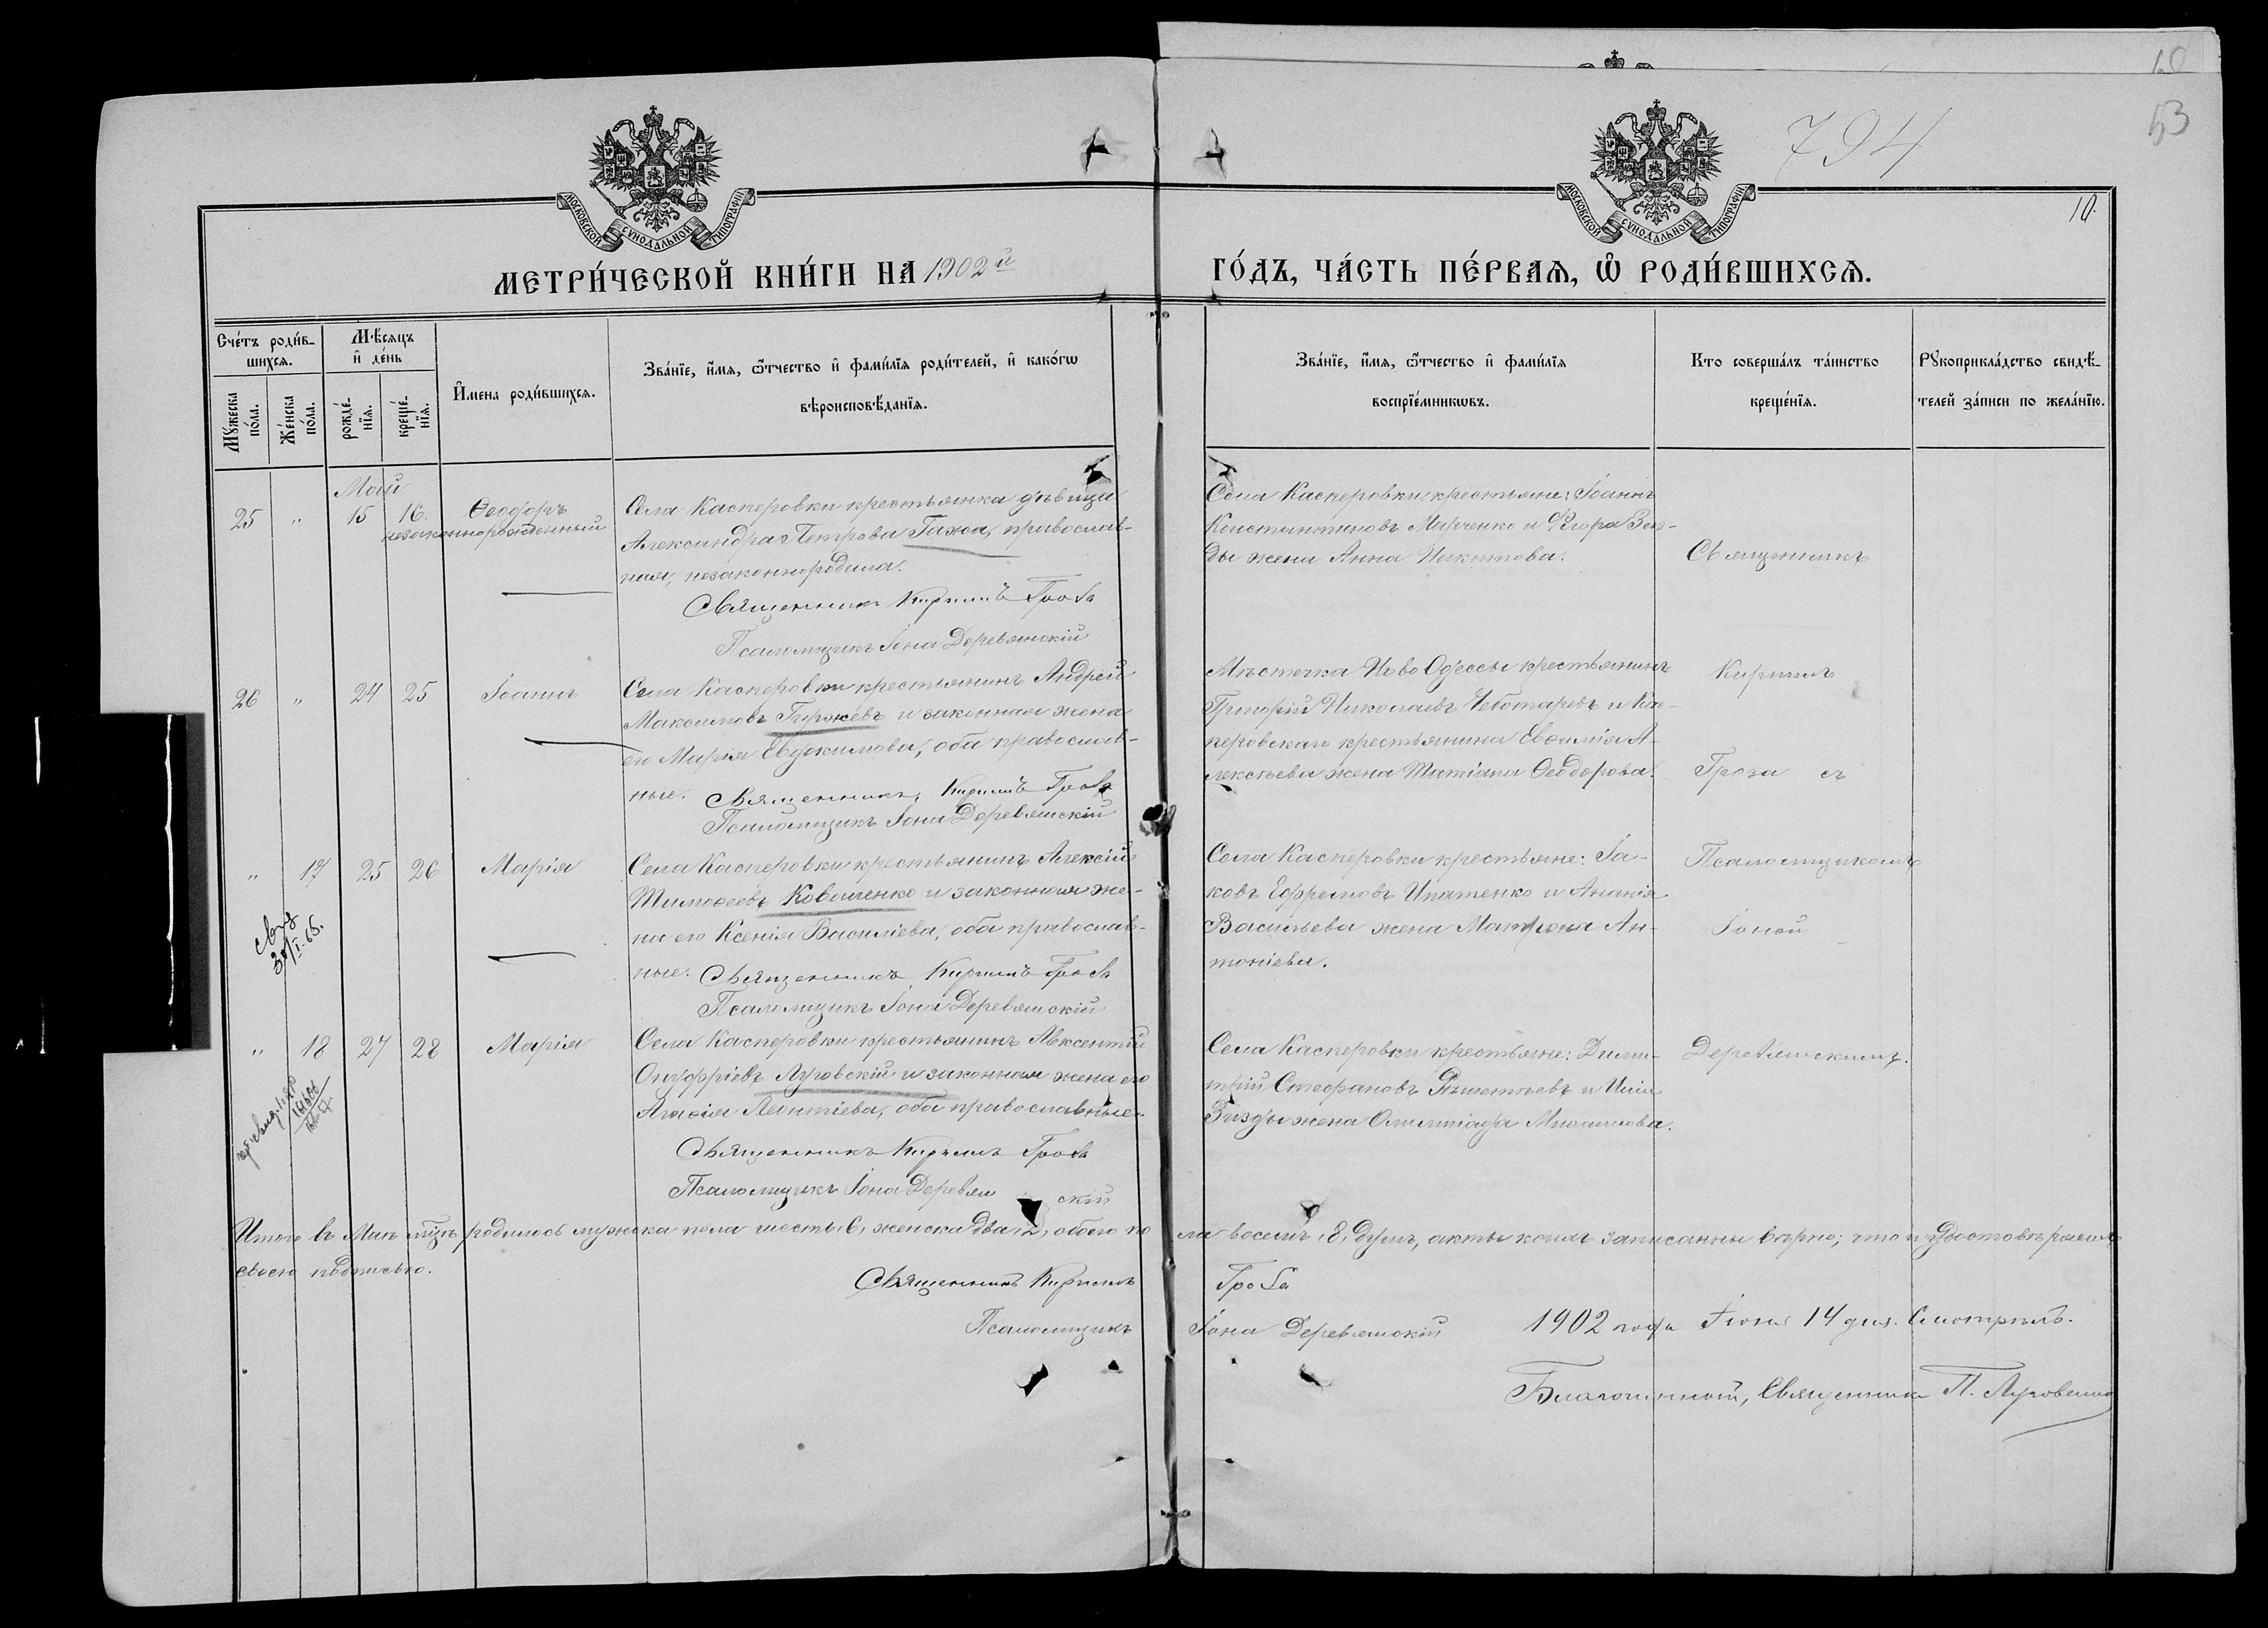 794
60
53
10.
МОСКОВСКОЙ СѴНОДАЛЬНОЙ ТИПОГРАФІИ
МОСКОВСКОЙ СѴНОДАЛЬНОЙ ТИПОГРАФІИ
МЕТРИ́ЧЕСКОЙ КНИ́ГИ НА 1902й
ГО́ДЪ, ЧА́СТЬ ПЕ́РВАЯ, Ѽ РОДИ́ВШИХСЯ.
Сче́тъ роди́в-
шихся.
Мѣ́сяцъ
и҆ де́нь
Му́жеска
по́ла.
Же́нска
по́ла.
рожде́-
нїя.
креще́-
нїя.
И҆мена роди́вшихся.
Зва́нїе, и҆́мя, ѻ҆́тчество и҆ фами́лїя роди́телей, и҆ како́гѡ
вѣроисповѣ́данїя.
Зва́нїе, и҆́мя, ѻ҆́тчество и҆ фами́лїя
воспрїе́мникѡвъ.
Кто соверша́лъ та́инство
креще́нїя.
Рꙋкоприкла́дство свидѣ́-
телей за́писи по жела́нїю.
Май
25 " 15 16. Ѳеодоръ
незаконнорожденный
Села Касперовки крестьянка дѣвица
Александра Петрова Гажа, православ-
ная, незаконнородила.
Священникъ Кириллъ Гроза
Псаломщикъ Іона Деревянскій
Села Касперовки крестьяне: Іоаннъ
Константиновъ Марченко и Ѳ
ды жена Анна Никитова.
Священникъ
26 " 24 25 Іоаннъ
Села Касперовки крестьянинъ Андрей
Максимовъ Гиржевъ и законная жена
его Марія Евдокимова, оба православ-
ные. Священникъ Кириллъ Гроза
Псаломщикъ Іона Деревянскій
Мѣстечка Ново Одессы крестьянинъ
Григорій Николаевъ Чеботаревъ и Кас-
перовскаго крестьянина Евѳимія А-
лексѣева жена Татіана Ѳеодорова.
Кириллъ
Гроза съ
" 17 25 26 Марія
Села Касперовки крестьянинъ Алексій
Тимоѳеевъ Коваленко и законная же-
на его Ксенія Василіева, оба православ-
ные. Священникъ Кириллъ Гроза
Псаломщикъ Іона Деревянскій
Села Касперовки крестьяне: Іа-
ковъ Ефремовъ Ипатенко и Ананія
Васильева жена Матрона Ан-
тоніева.
Псаломщикомъ
Іоной
30/I-65.
" 18 27 28 Марія
Села Касперовки крестьянинъ Авксентій
Онуфріевъ Луговскій и законная жена его
Агаѳія Леонтіева, оба православные.
Священникъ Кириллъ Гроза
Псаломщикъ Іона Деревян скій
Села Касперовки крестьяне: Дими-
трій Стефановъ и Иліи
жена Олимпіада Михаилова.
Деревянскимъ.
Итого въ Маѣ м-цѣ родилось мужска пола шесть, 6, женска два, 2, обоего по ла восемь, 8, душъ, акты коихъ записанны вѣрно; что и удостовѣряемъ
своею подписью.
Священникъ Кириллъ Гроза
Псаломщикъ Іона Деревянскій
1902 года Іюня 14 дня. Смотрѣлъ.
Благочинный, Священникъ П.